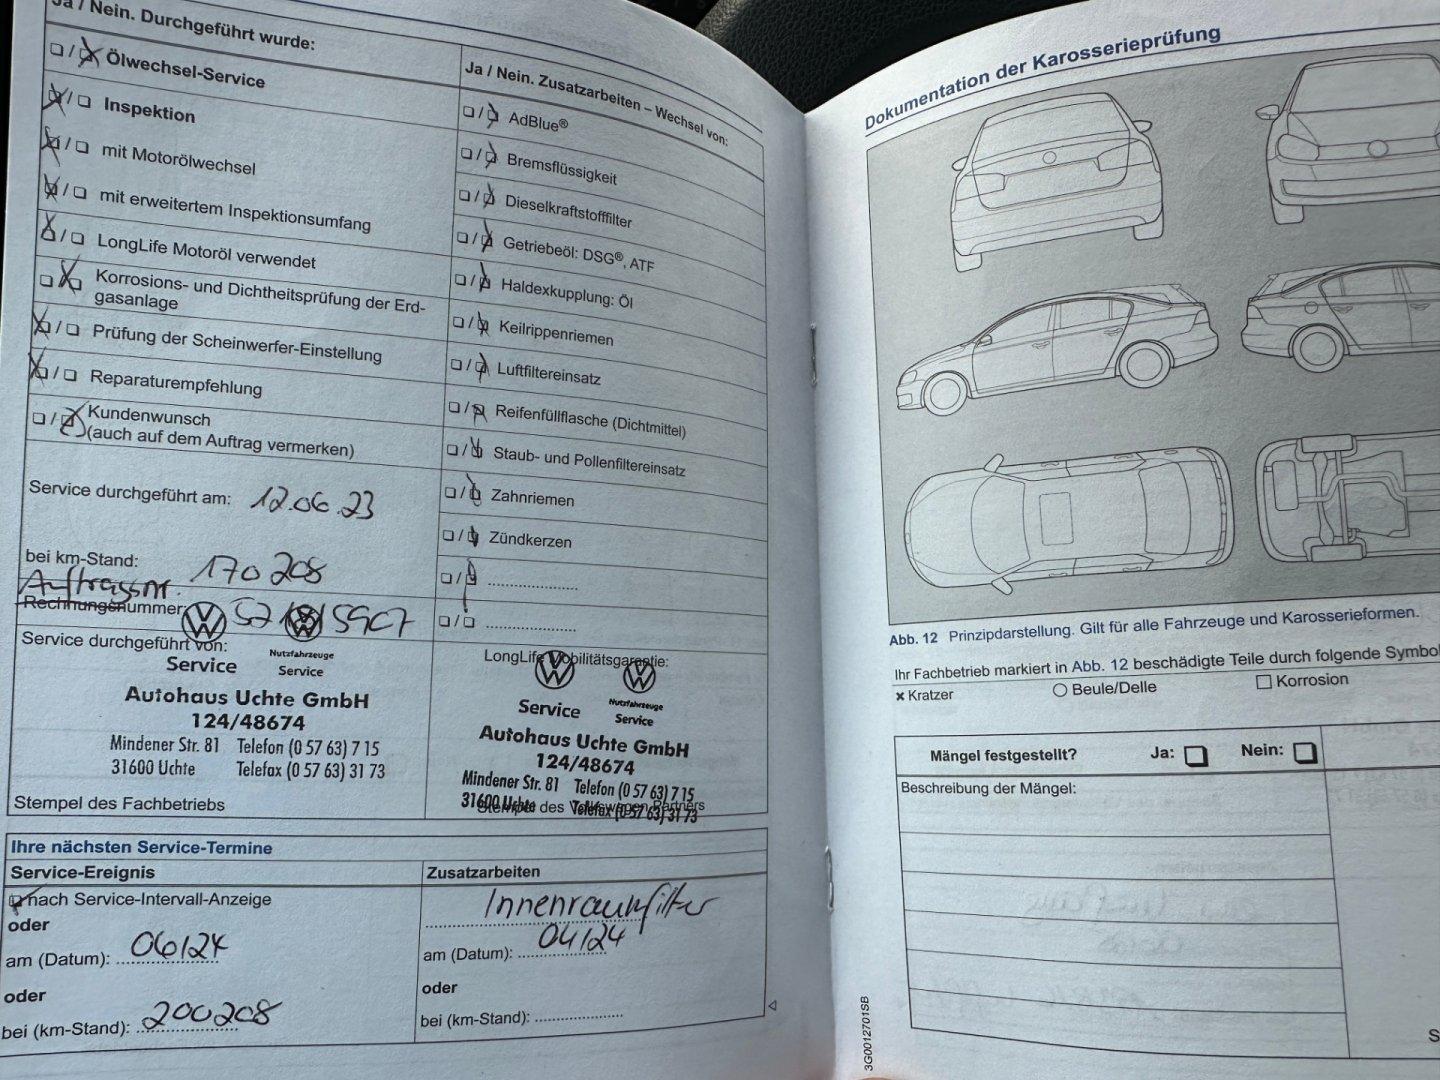 Ja / Nein. Durchgeführt wurde:
Ölwechsel-Service
Inspektion
mit Motorölwechsel
mit erweitertem Inspektionsumfang
LongLife Motoröl verwendet
Korrosions- und Dichtheitsprüfung der Erd-
gasanlage
Prüfung der Scheinwerfer-Einstellung
Reparaturempfehlung
Kundenwunsch
(auch auf dem Auftrag vermerken)
Service durchgeführt am: 12.06.23
bei km-Stand: 170208
Auftragsnr.
Rechnungsnummer:
Service durchgeführt von:
Service
Nutzfahrzeuge
Service
Autohaus Uchte GmbH
124/48674
Mindener Str. 81 Telefon (0 57 63) 7 15
31600 Uchte Telefax (0 57 63) 31 73
Stempel des Fachbetriebs
Ja / Nein. Zusatzarbeiten – Wechsel von:
AdBlue®
Bremsflüssigkeit
Dieselkraftstofffilter
Getriebeöl: DSG®, ATF
Haldexkupplung: Öl
Keilrippenriemen
Luftfiltereinsatz
Reifenfüllflasche (Dichtmittel)
Staub- und Pollenfiltereinsatz
Zahnriemen
Zündkerzen
LongLife Mobilitätsgarantie:
Service
Nutzfahrzeuge
Service
Autohaus Uchte GmbH
124/48674
Mindener Str. 81 Telefon (0 57 63) 7 15
31600 Uchte Telefax (0 57 63) 31 73
Stempel des Volkswagen Partners
Ihre nächsten Service-Termine
Service-Ereignis
nach Service-Intervall-Anzeige
oder
am (Datum): 06/24
oder
bei (km-Stand): 200208
Zusatzarbeiten
Innenraumfilter
am (Datum): 04/24
oder
bei (km-Stand):
Dokumentation der Karosserieprüfung
Abb. 12 Prinzipdarstellung. Gilt für alle Fahrzeuge und Karosserieformen.
Ihr Fachbetrieb markiert in Abb. 12 beschädigte Teile durch folgende Symbol
Kratzer Beule/Delle Korrosion
Mängel festgestellt? Ja: Nein:
Beschreibung der Mängel:
S
3G0012701SB